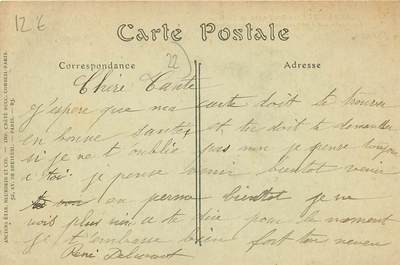 12 €
Carte Postale
22
Correspondance
Adresse
Chère Tante
J'espere que ma carte doit te trouver
en bonne santé et tu doit te demander
si je ne t'oublie pas non je pense toujours
a toi je pense venir bientot venir
en perme bientot je ne
vois plus rien a te dire pour le moment
je t'embrasse bien fort ton neveu
René